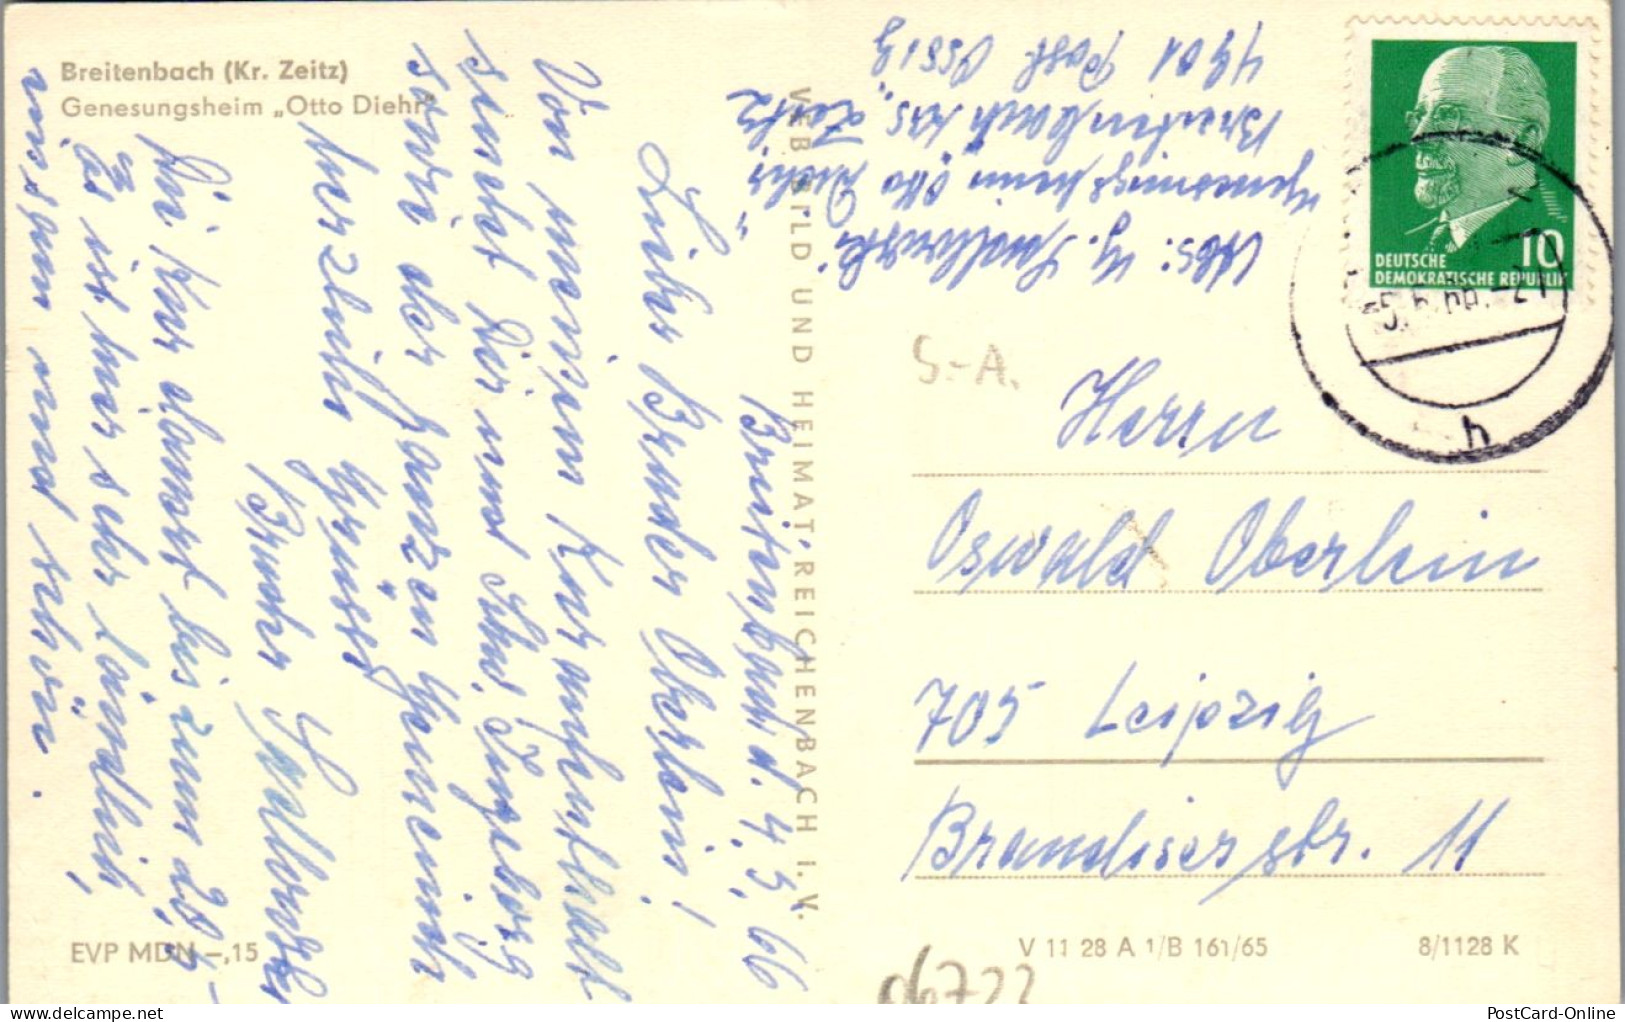 Breitenbach (Kr. Zeitz)
Genesungsheim „Otto Diehr"
Abs: G.
Genesungsheim Otto Diehr"
Breitenbach Krs. Zeitz
4901 Post Ossig
DEUTSCHE
DEMOKRATISCHE REPUBLIK
10
h
S.-A.
Breitenbach d. 4.5.66
Lieber Bruder Oberlein!
Von meinem Kuraufenthalt
sendet Dir und Schw. Ingeborg
sowie der ganzen Gemeinde
herzliche Grüsse
Bruder
Die Kur dauert bis zum 28.5.
Es ist hier sehr ländlich,
einsam und schön.
VEB BILD UND HEIMAT, REICHENBACH I. V.
Herrn
Oswald Oberlein
705 Leipzig
Brandiserstr. 11
EVP MDN –,15
V 11 28 A 1/B 161/65
8/1128 K
06722
PostCard-Online